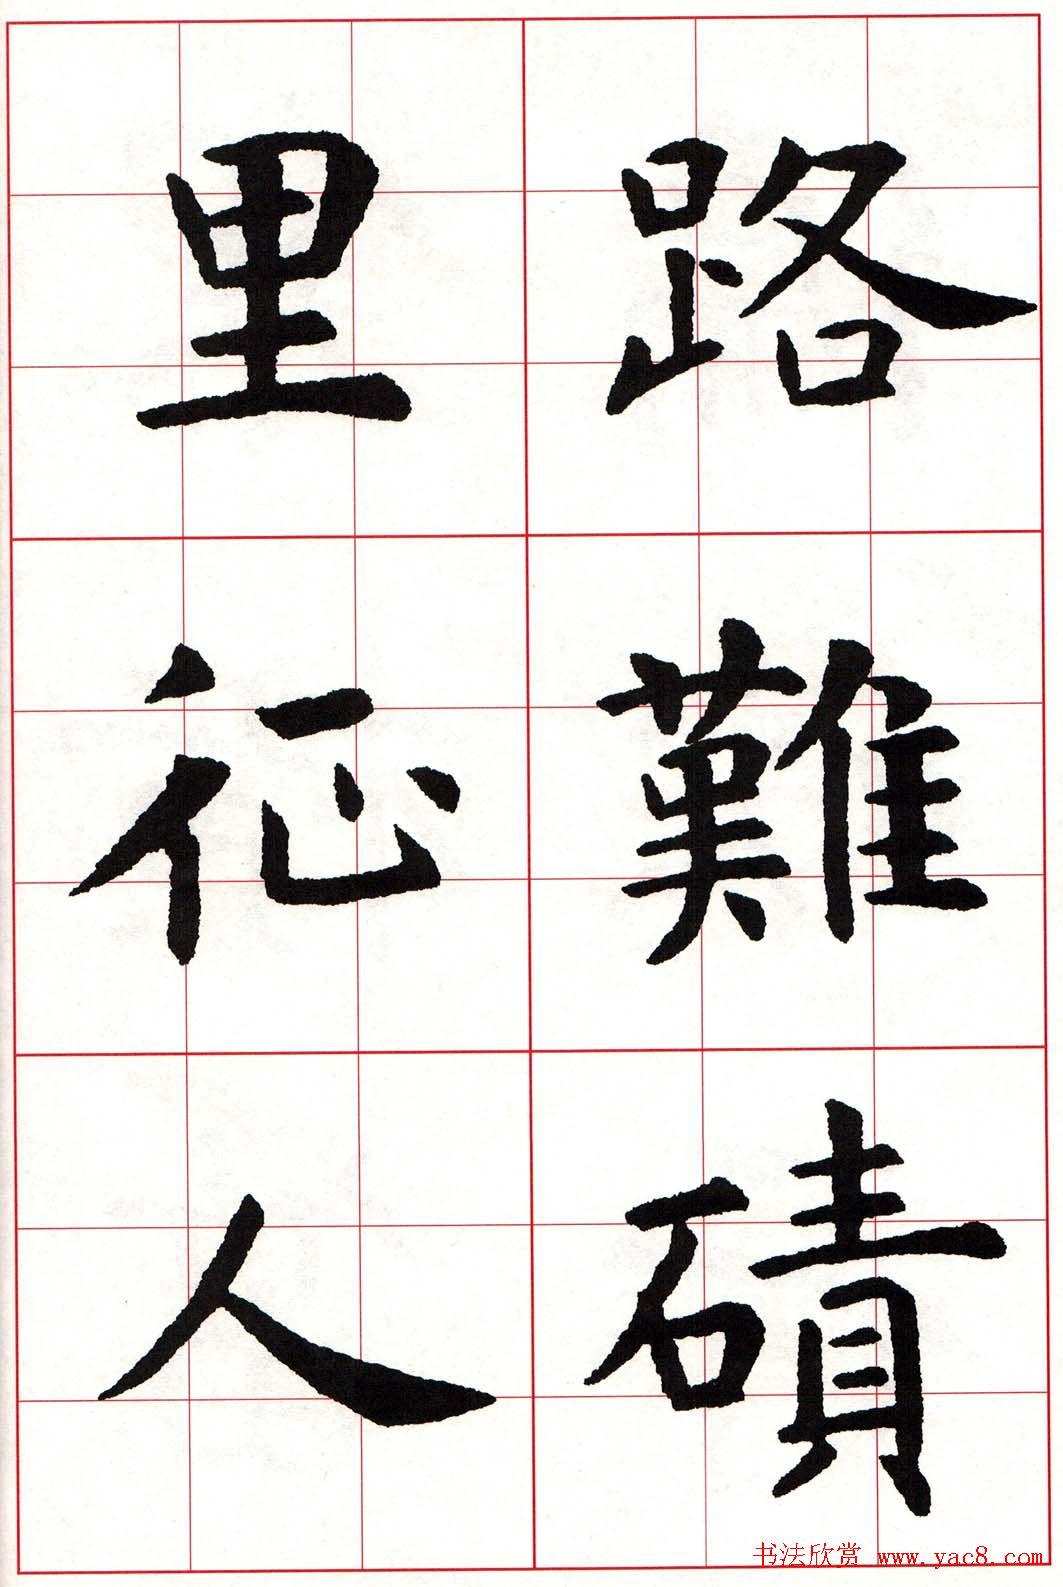 路難磧
里征人
书法欣赏 www.yac8.com